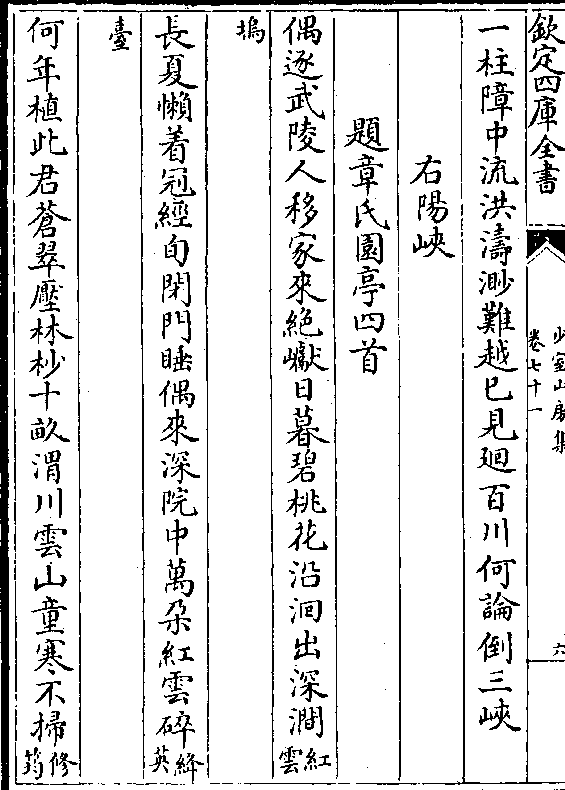 欽定四庫全書
少室山房集
卷七十一
六
一柱障中流洪濤渺難越已見廻百川何論倒三峽
右陽峽
題章氏園亭四首
偶逐武陵人移家來絶巘日暮碧桃花沿洄出深澗紅雲
塢
長夏懶着冠經旬閉門睡偶來深院中萬朶紅雲碎絳英
臺
何年植此君蒼翠壓林杪十畝渭川雲山童寒不掃修筠